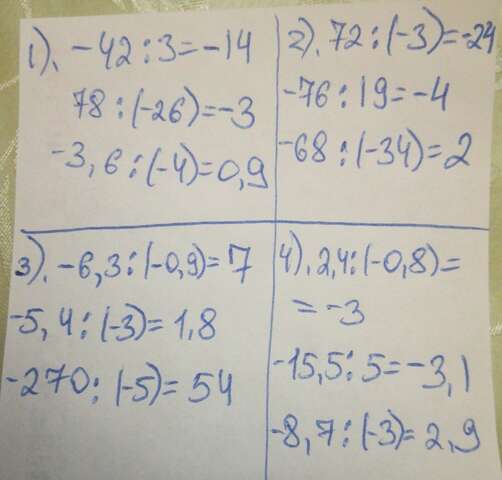 1). -42 : 3 = -14
78 : (-26) = -3
-3,6 : (-4) = 0,9
2). 72 : (-3) = -24
-76 : 19 = -4
-68 : (-34) = 2
3). -6,3 : (-0,9) = 7
-5,4 : (-3) = 1,8
-270 : (-5) = 54
4). 2,4 : (-0,8) =
= -3
-15,5 : 5 = -3,1
-8,7 : (-3) = 2,9